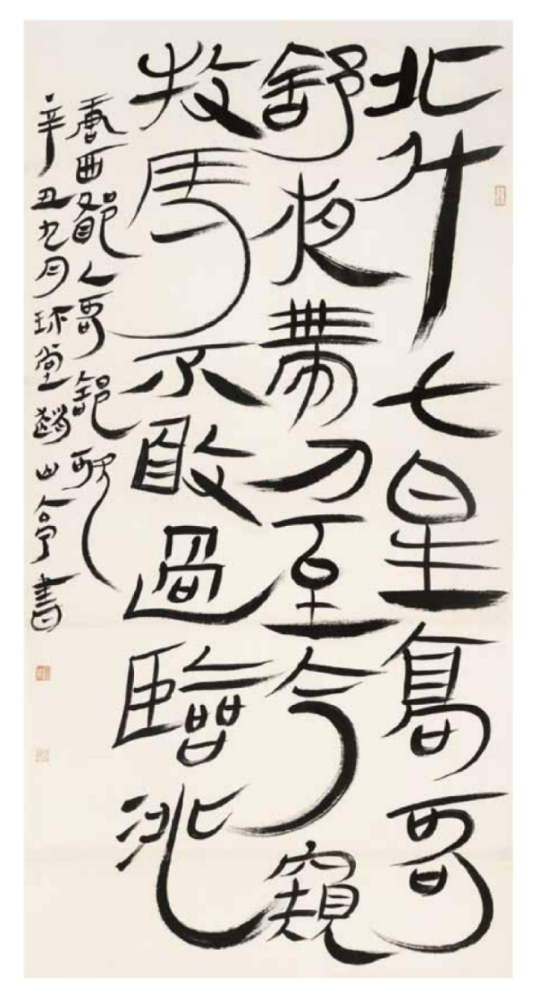 北斗七星高哥
舒夜帶刀至今窺
牧馬不敢過臨洮
唐西鄙人哥舒歌
辛丑九月堂趙山亭書